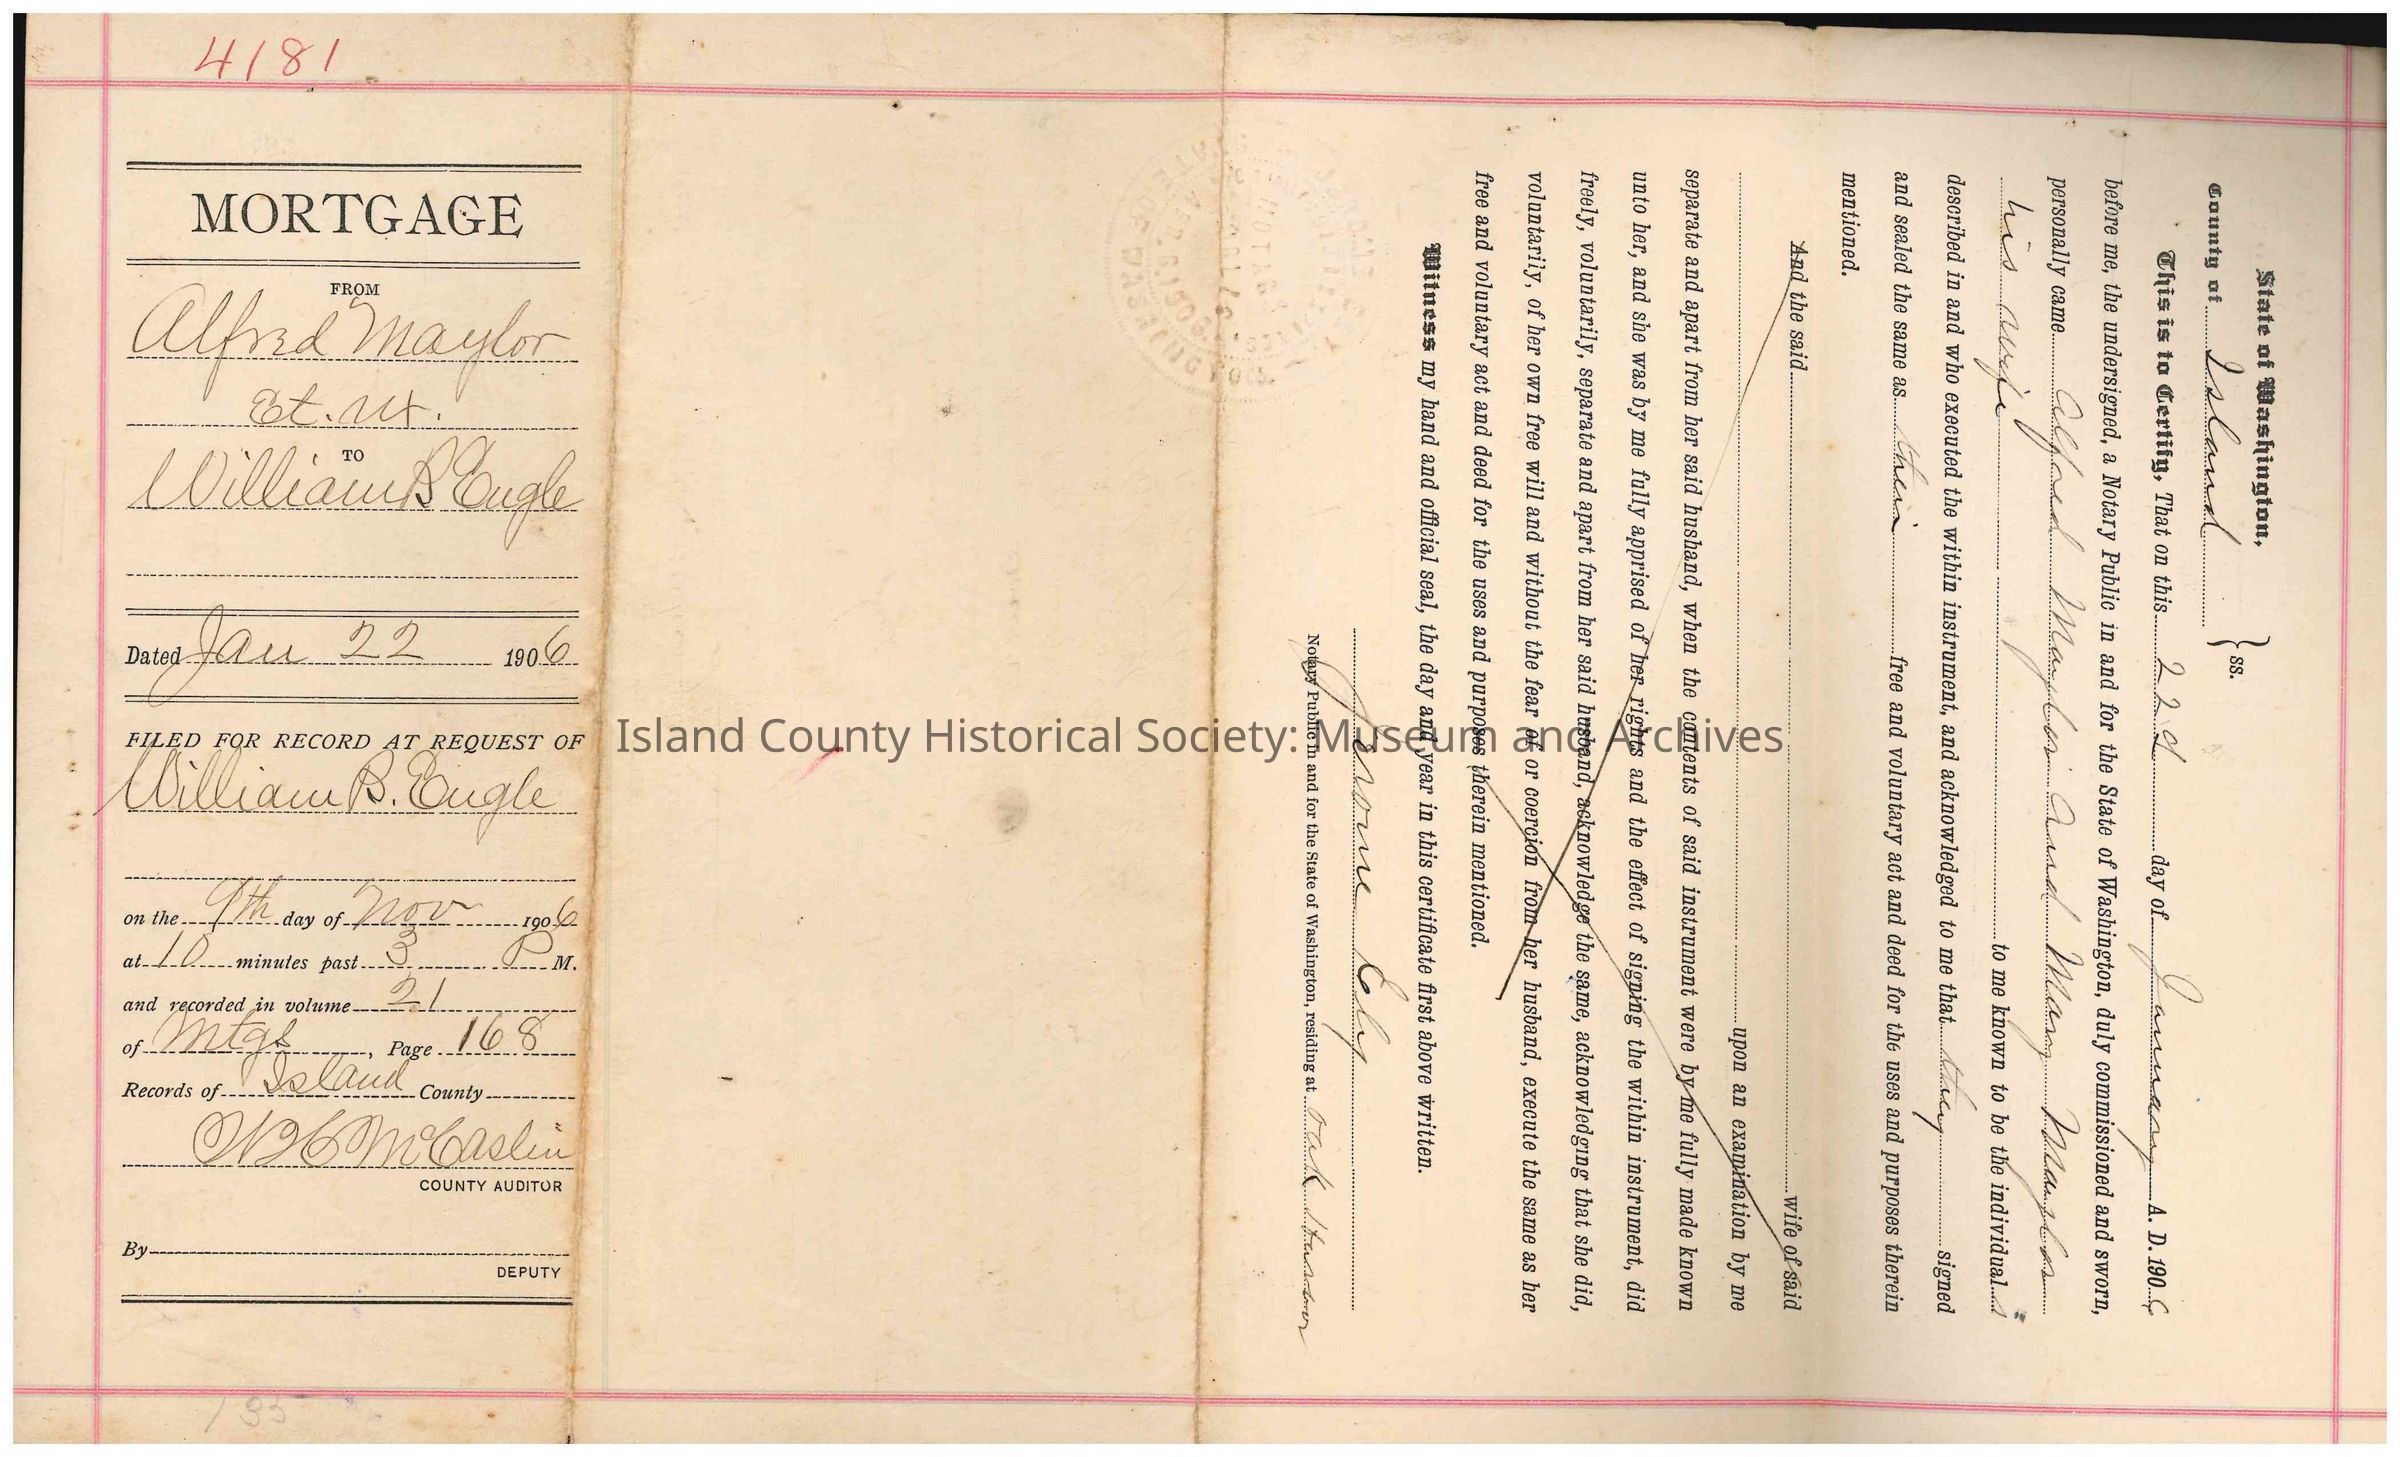 4181
MORTGAGE
FROM
Alfred Maylor
Et. ux.
TO
William B Engle
Dated Jan 22 1906
FILED FOR RECORD AT REQUEST OF
William B. Engle
on the 9th day of Nov 1906
at 10 minutes past 3 P M.
and recorded in volume 21
of Mtgs, Page 168
Records of Island County
McCaslin
COUNTY AUDITOR
By
DEPUTY
135
Island County Historical Society: Museum and Archives
State of Washington,
County of Island } ss.
This is to Certify, That on this 22d day of January A. D. 1906
before me, the undersigned, a Notary Public in and for the State of Washington, duly commissioned and sworn,
personally came Alfred Maylor and Mary Maylor
his wife to me known to be the individuals
described in and who executed the within instrument, and acknowledged to me that they signed
and sealed the same as their free and voluntary act and deed for the uses and purposes therein
mentioned.
And the said wife of said
upon an examination by me
separate and apart from her said husband, when the contents of said instrument were by me fully made known
unto her, and she was by me fully apprised of her rights and the effect of signing the within instrument, did
freely, voluntarily, separate and apart from her said husband, acknowledge the same, acknowledging that she did,
voluntarily, of her own free will and without the fear of or coercion from her husband, execute the same as her
free and voluntary act and deed for the uses and purposes therein mentioned.
Witness my hand and official seal, the day and year in this certificate first above written.
Jerome Ely
Notary Public in and for the State of Washington, residing at Oak Harbor